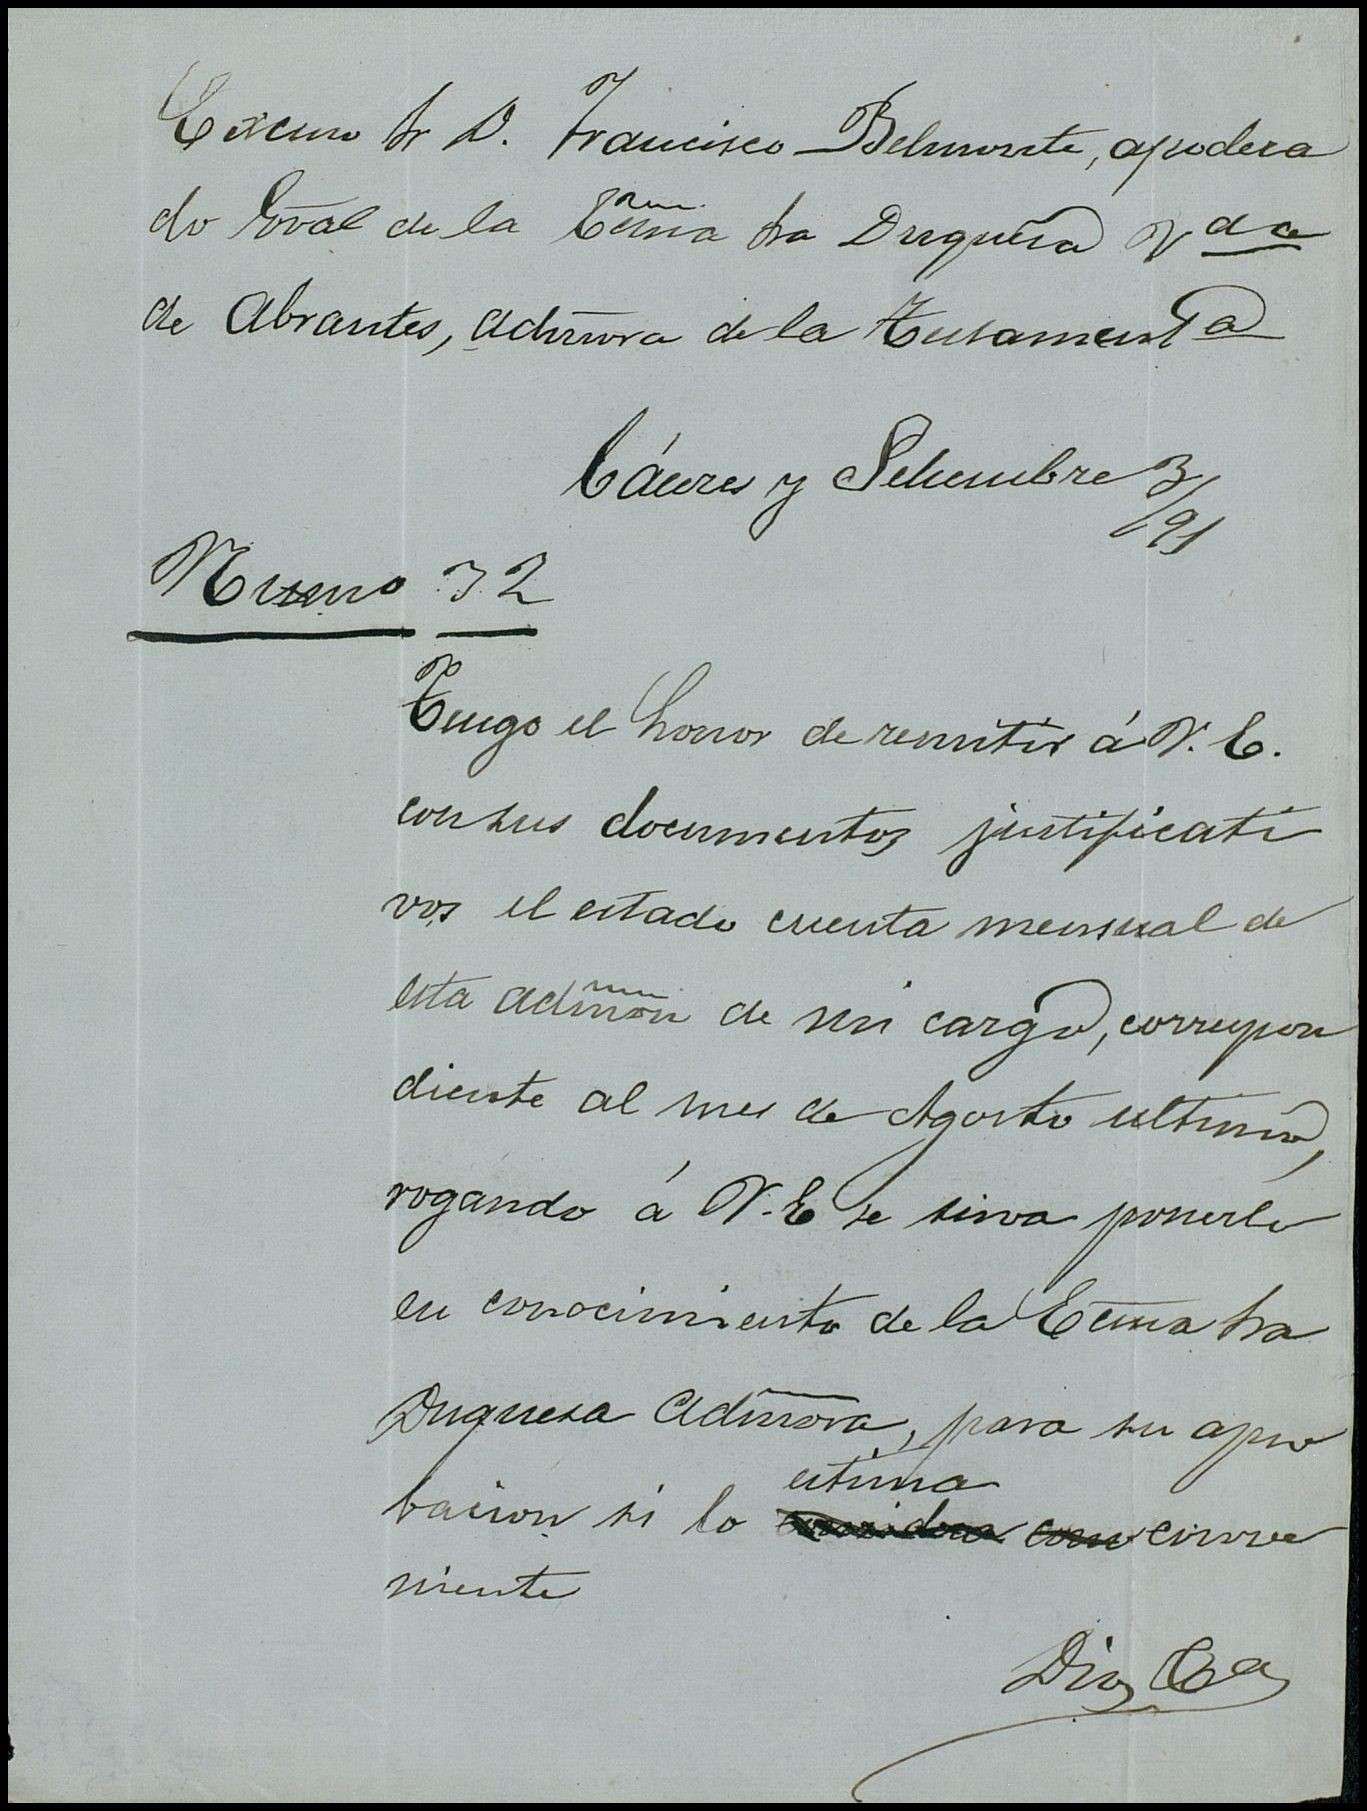 Excmo Sr D. Francisco Belmonte, apodera
do Gral de la Ecma Sra Duquesa Vda
de Abrantes, Admora de la Testamentª
Cáceres y Setiembre 3/91
Numo 32
Tengo el honor de remitir á V. E.
con sus documentos justificati
vos el estado cuenta mensual de
esta admon de mi cargo, correspon
diente al mes de Agosto ultimo,
rogando á V. E se sirva ponerlo
en conocimiento de la Ecma Sra
Duquesa Admora, para su apro
bacion si lo estima conve
niente